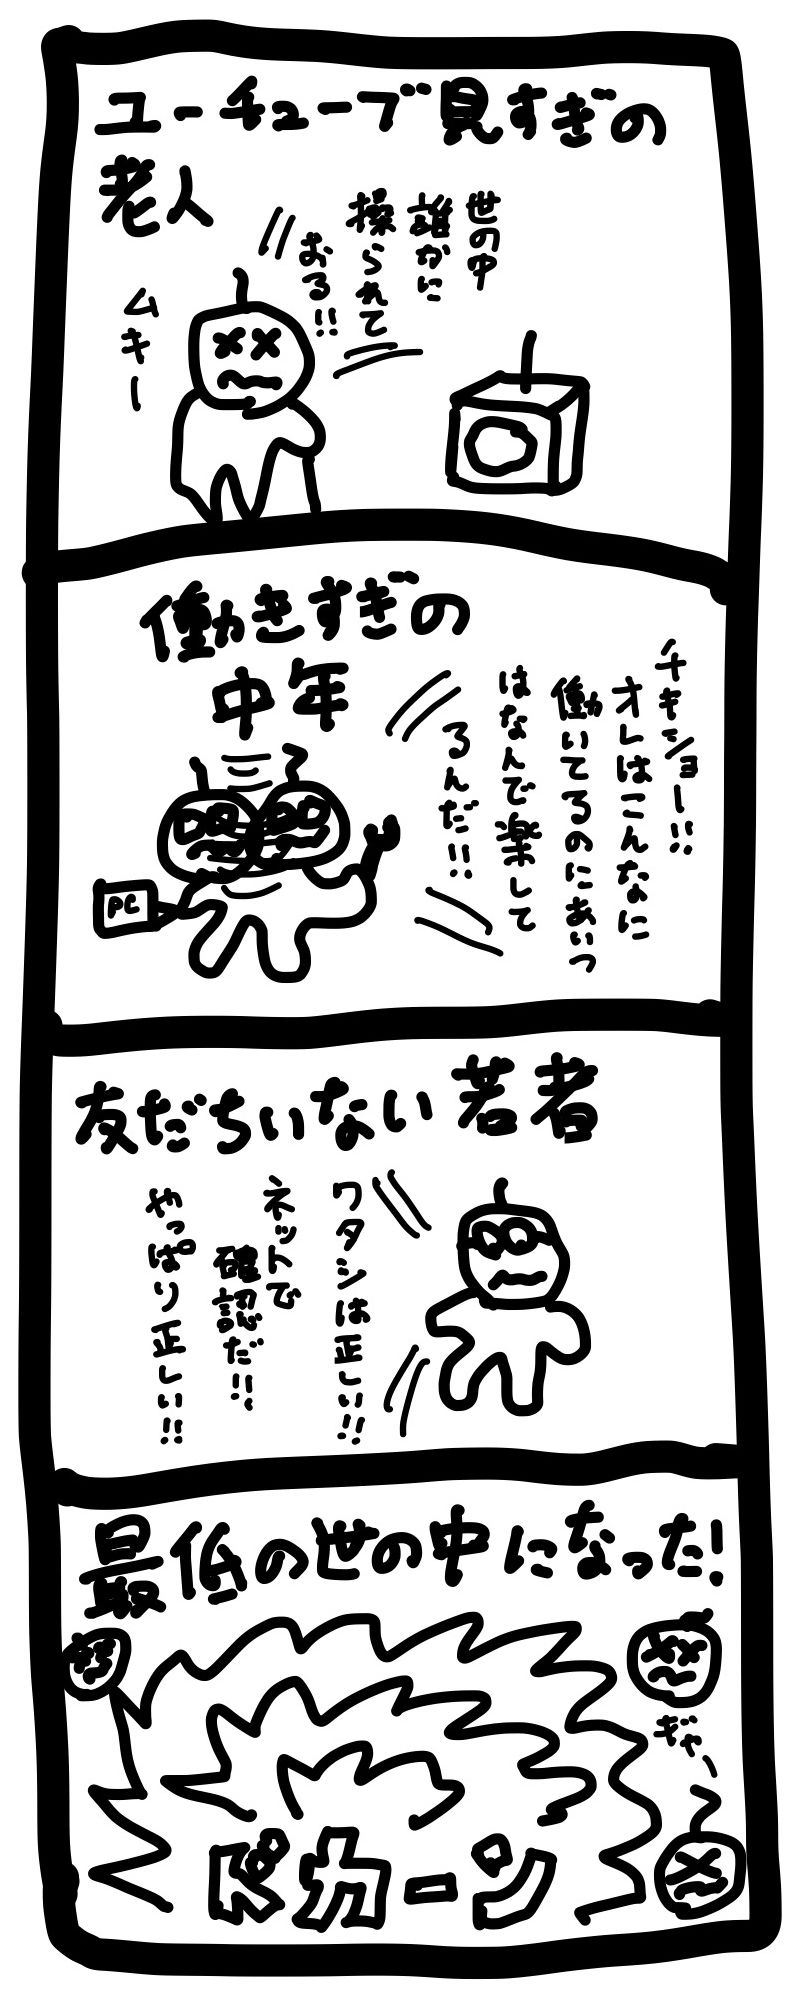 ユーチューブ見すぎの
老人
世の中
誰かに
操られて
おる!!
ムキー
働きすぎの
中年
チキショー!!
オレはこんなに
働いてるのにあいつ
はなんで楽して
るんだ!!
PC
友だちいない若者
ワタシは正しい!!
ネットで
確認だ!!
やっぱり正しい!!
最低の世の中になった!
ギャー
ドカーン